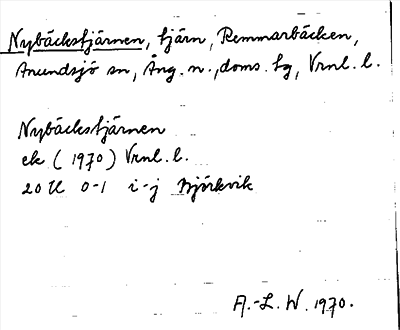 Nybäckstjärnen, tjärn, Remmarbäcken,
Anundsjö sn, Ång. n., doms. tg, Vrnl. l.
Nybäckstjärnen
ek (1970) Vrnl. l.
20 U 0-1 i-j Björkvik
A.-L. W. 1970.